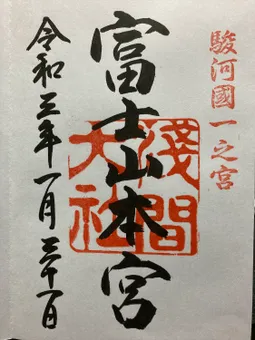 駿河國一之宮
富士山本宮
淺間大社
令和三年一月三十一日